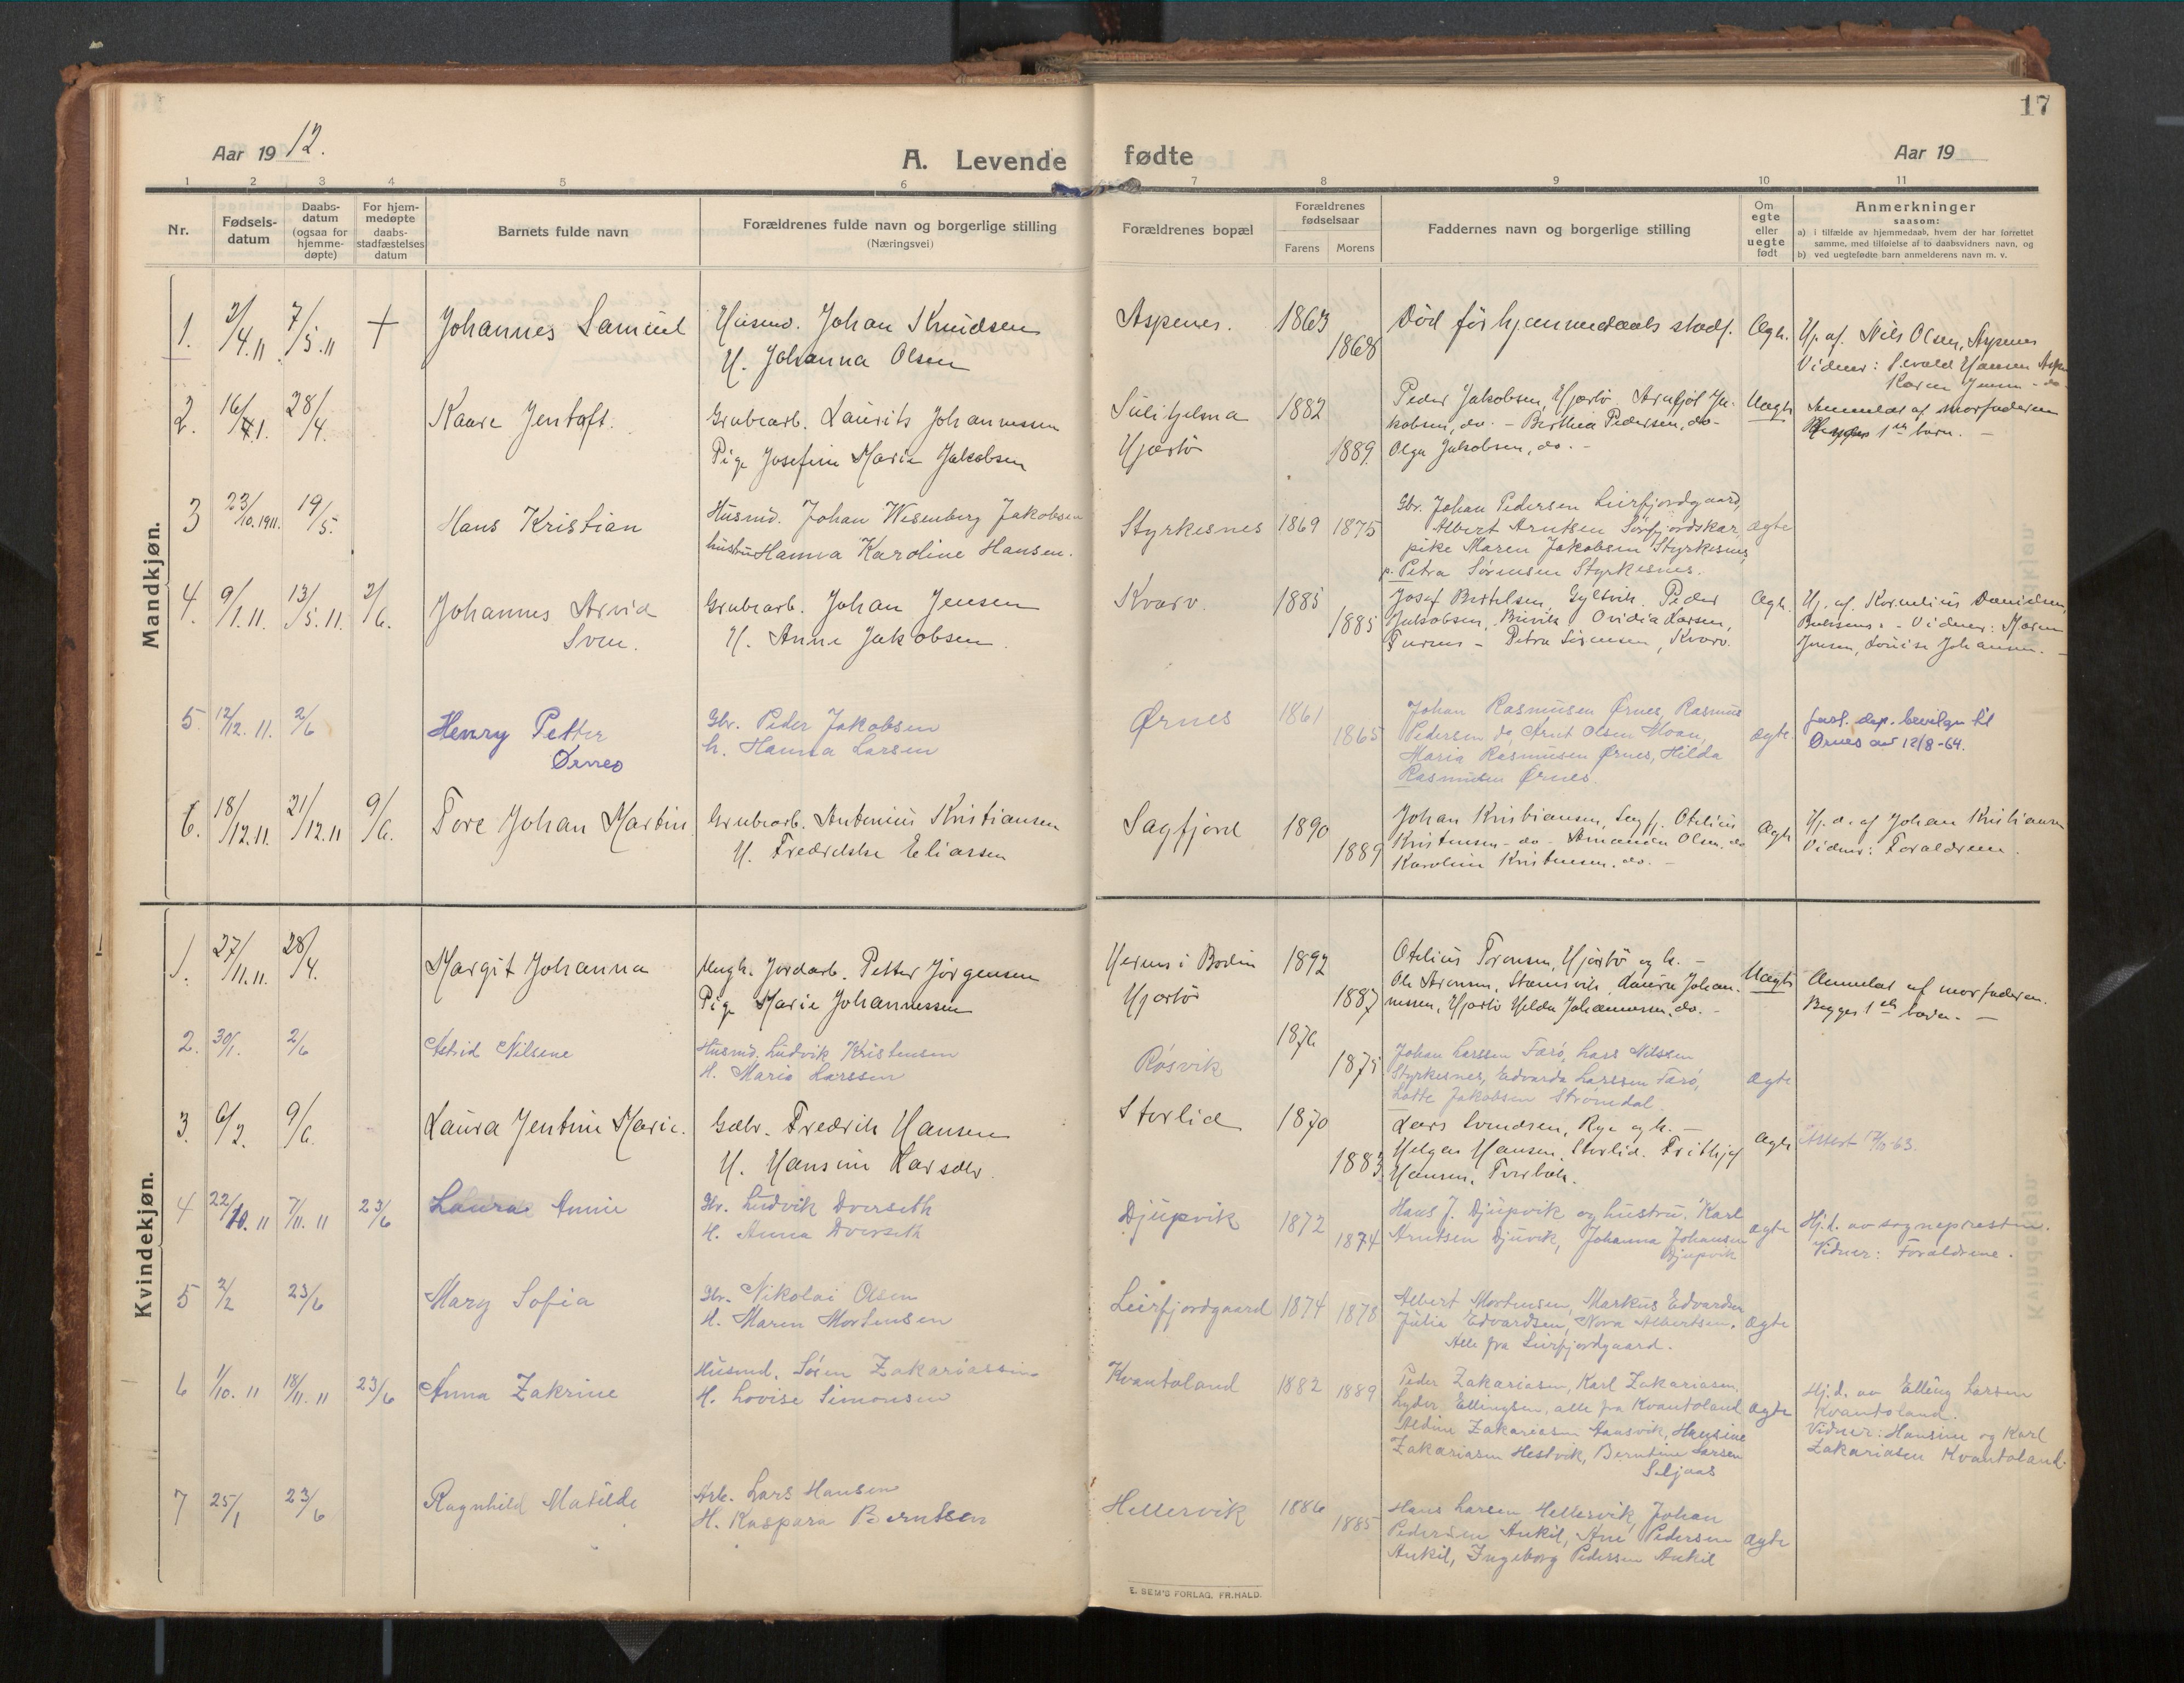 17
Aar 1912.
A. Levende fødte
Aar 19
1 2 3 4 5 6 7 8 9 10 11
Nr.
Fødsels-
datum
Daabs-
datum
(ogsaa for
hjemme-
døpte)
For hjem-
medøpte
daabs-
stadfæstelses
datum
Barnets fulde navn
Forældrenes fulde navn og borgerlige stilling
(Næringsvei)
Forældrenes bopæl
Forældrenes
fødselsaar
Farens Morens
Faddernes navn og borgerlige stilling
Om
egte
eller
uegte
født
Anmerkninger
saasom:
a) i tilfælde av hjemmedaab, hvem der har forrettet
samme, med tilføielse af to daabsvidners navn, og
b) ved uegtefødte barn anmelderens navn m. v.
Mandkjøn.
1. 2/4.11 7/5.11 + Johannes Samuel
Husmd. Johan Knudsen
H. Johanna Olsen
Aspenes. 1863 1868
Død før hjemmedaabs stadf. Ægt.
Hj. af. Nils Olsen, Aspenes
Vidner: Sevald Hansen Aspe
Karen Jensen - do
2. 16/1. 28/4. Kaare Jentoft.
Grubearb. Laurits Johannessen
Pige Josefine Marie Jakobsen
Sulitjelma
Hjartø
1882 1889.
Peder Jakobsen, Hjartø. Arnfjot Ja-
kobsen, do. - Berthea Pedersen, do-
Olga Jakobsen, do. -
Uægte
Anmeldt af morfaderen
1ste barn. -
3 23/10.1911. 19/5. Hans Kristian
Husmd. Johan Wesenberg Jakobsen
hustru Hanna Karoline Hansen.
Styrkesnes 1869 1875
Gbr. Johan Pedersen Leirfjordgaard,
Albert Arntsen Sørfjordskar,
pike Maren Jakobsen Styrkesnes,
p. Petra Sørensen Styrkesnes.
ægte
4. 9/1.11. 13/5.11. 2/6. Johannes Arvid
Sven.
Grubearb. Johan Jensen
H. Anne Jakobsen.
Kvarv. 1885 1885
Josef Bertelsen, Gyltvik. Peder
Jakobsen, Brivik Ovidia Larsen,
Furnes - Petra Sørensen, Kvarv.
Ægt.
Hj. af. Kornelius Danielsen,
Vidner: Maren
Jensen, Louise Johansen. -
5 12/12.11. 2/6 Henry Petter
Ørnes
Gbr. Peder Jakobsen
h. Hanna Larsen
Ørnes 1861 1865
Johan Rasmusen Ørnes, Rasmus
Pedersen do, Arnt Olsen Moan,
Maria Rasmusen Ørnes, Hilda
Rasmusen Ørnes.
ægte.
Just. dep. bevilgn til
Ørnes av 12/8-64.
6. 18/12.11. 21/12.11 9/6. Tore Johan Martin
Grubearb. Antonius Kristiansen
H. Fredrikke Eliassen
Sagfjord 1890 1889
Johan Kristiansen, Sagfj. Otelius
Kristensen - do - Amanda Olsen, do
Karoline Kristensen, do. -
Ægte
Hj. d. af Johan Kristiansen
Vidner: Forældrene.
Kvindekjøn.
1. 27/11.11. 28/4. Margit Johanna
Ungk. Jordarb. Petter Jørgensen
Pige Marie Johannessen
Hernes i Bodin
Hjartø
1892 1887
Otelius Torensen, Hjartø og h. -
Ole Arensen, Stamsvik, Laura Johan-
nessen, Hjartø Helda Johannessen, do. -
Uægte
Anmeldt af morfaderen.
Begges 1ste barn. -
2. 30/1. 2/6 Astrid Nilsine
Husmd. Ludvik Kristensen
H. Marie Larssen
Røsvik 1876 1875
Johan Larssen Færø, Lars Nilssen
Styrkesnes, Edvarda Larssen Færø,
Lotte Jakobsen Strømdal.
ægte
3. 6/2. 9/6. Laura Jentine Marie.
Gdbr. Fredrik Hansen
H. Hansine Larsdtr.
Storlid 1870 1883.
Lars Svendsen, Rye og h. -
Helgas Hansen, Storlid. Frithjof
Hansen, Tverbak.
Ægte
Attest 17/10-63.
4 22/10.11 7/11.11 23/6 Laura Annie
Gbr. Ludvik Dverseth
H. Anna Dverseth
Djupvik 1872 1874
Hans J. Djupvik og hustru, Karl
Arntsen Djupvik, Johanna Johansen
Djupvik
ægte
Hj.d. av sogneprestn.
Vidner: Forældrene.
5 2/2 23/6 Mary Sofia
Gbr. Nikolai Olsen
H. Maren Mortensen
Leirfjordgaard 1874 1878
Albert Mortensen, Markus Edvardsen
Julia Edvardsen, Nora Albertsen.
Alle fra Leirfjordgaard.
ægte
6 1/10.11 18/11.11 23/6 Anna Zakrine
Husmd. Søren Zakariassen
H. Lovise Simonsen
Kvantoland 1882 1889
Peder Zakariasen, Karl Zakariasen,
Lyder Ellingsen, alle fra Kvantoland
Aldine Zakariasen Aansvik, Hansine
Zakariasen Hestvik, Berntine Larsen
Seljaas
ægte
Hj.d. av Elling Larsen
Kvantoland.
Vidner: Hansine og Karl
Zakariasen Kvantoland.
7 25/1 23/6 Ragnhild Matilde
Arb. Lars Hansen
H. Kaspara Berntsen
Hellervik 1886 1885
Hans Larsen Hellervik, Johan
Pedersen Ankil, Ane Pedersen
Ankil, Ingeborg Pedersen Ankil
ægte
E. SEM'S FORLAG. FR.HALD.